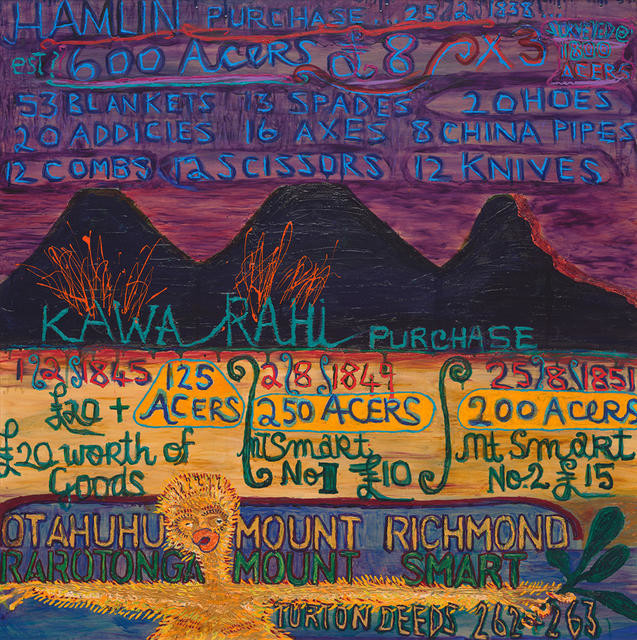 HAMLIN PURCHASE... 25/2/1838...
est? 600 ACERS £8 PX3
1800 ACERS
53 BLANKETS 13 SPADES 20 HOES
20 ADDICIES 16 AXES 8 CHINA PIPES
12 COMBS 12 SCISSORS 12 KNIVES
KAWA RAHI PURCHASE
1/2/1845 125 ACERS 2/8/1849 25/8/1851
£20 + 250 ACERS 200 ACERS
£20 worth of Goods
Mt Smart No II £10
Mt Smart No. 2 £15
OTAHUHU MOUNT RICHMOND
RAROTONGA MOUNT SMART
TURTON DEEDS 262-263